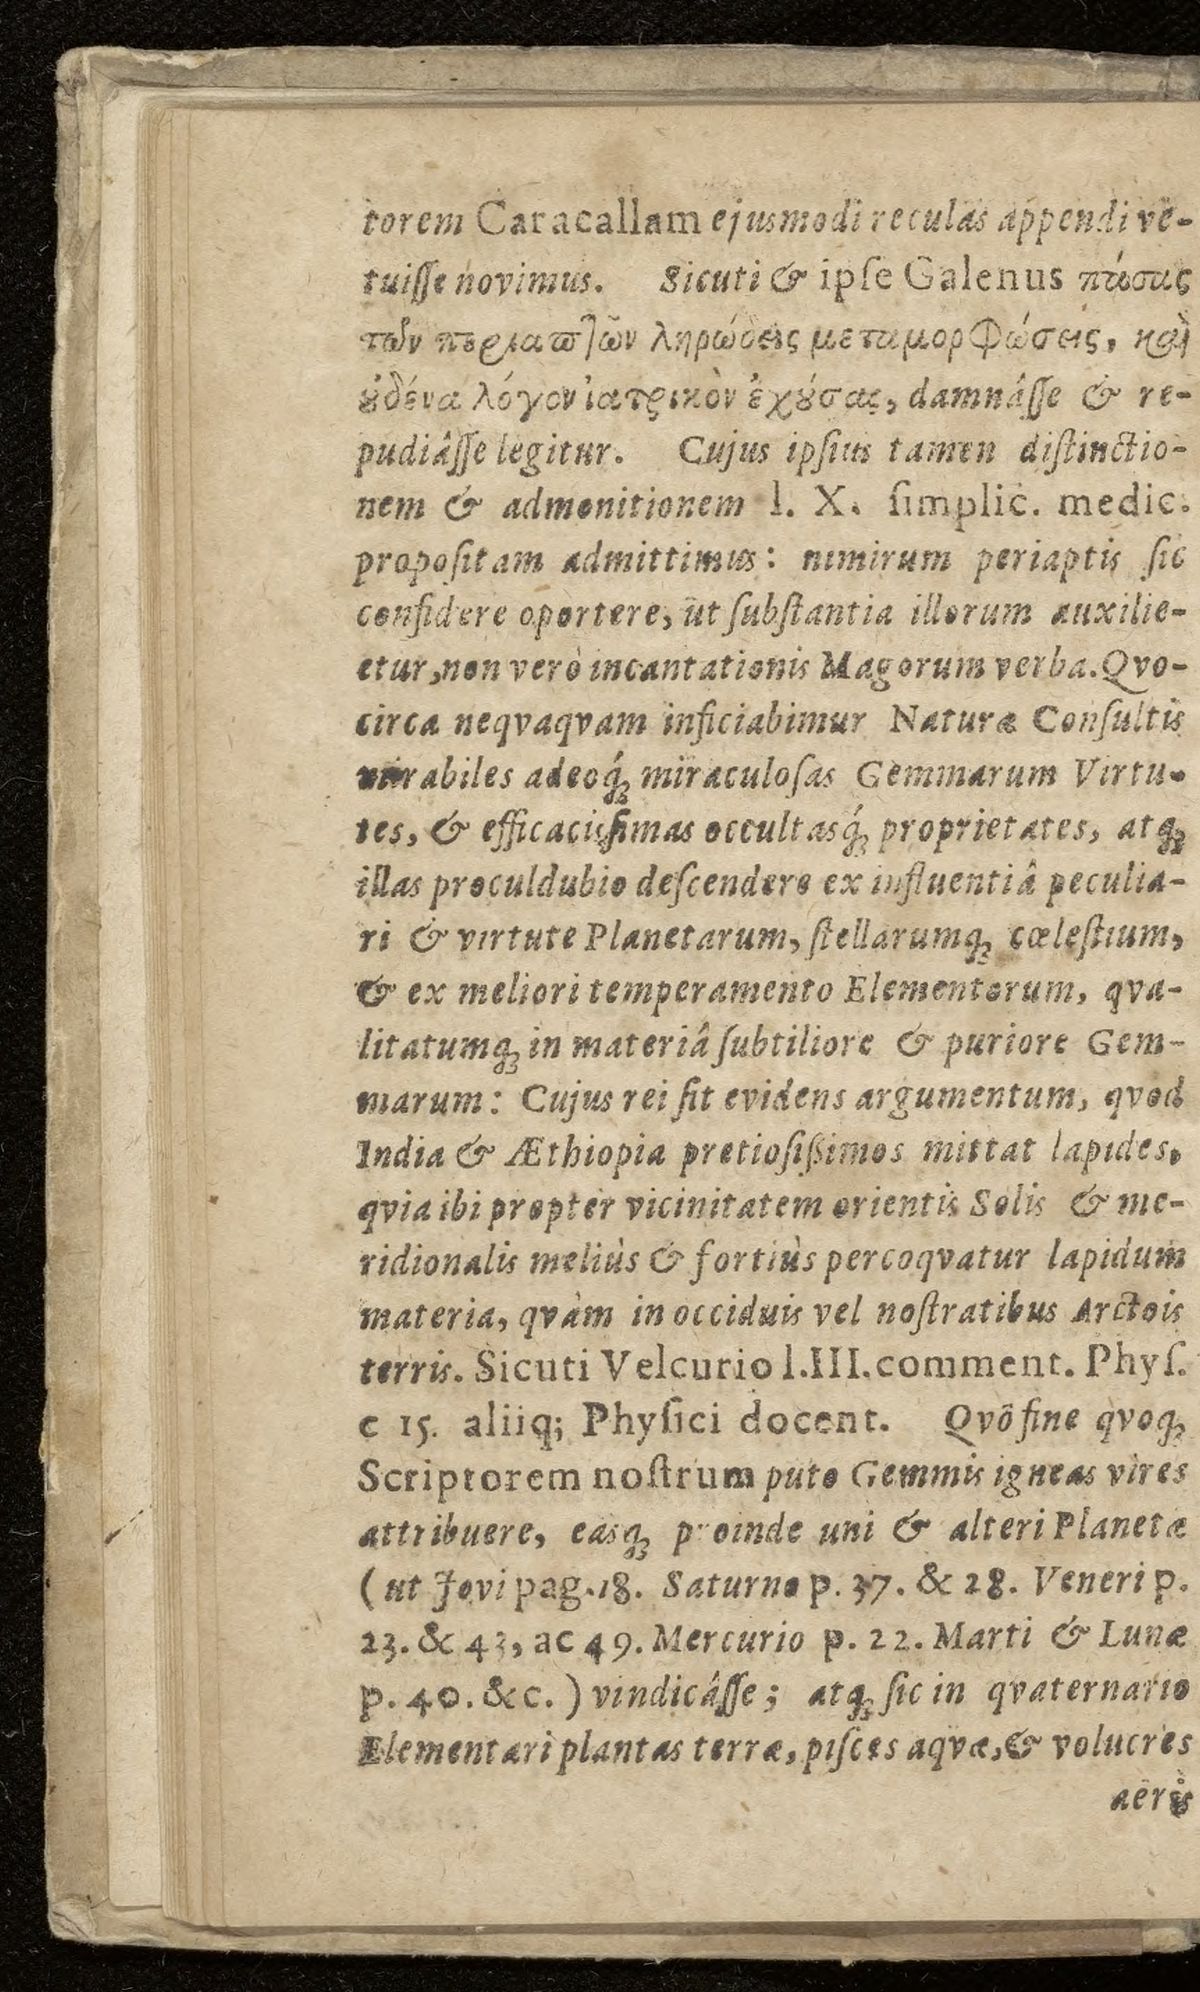 torem Caracallam ejusmodi reculas appendi ve-
tuiſſe novimus. Sicuti & ipſe Galenus πάσας
τῶν περιαπτῶν ληρώδεις μεταμορφώσεις, καὶ
ȣ̓δένα λόγον ἰατρικὸν ἐχȣ́σας, damnâſſe & re-
pudiâſſe legitur. Cujus ipſius tamen diſtinctio-
nem & admonitionem l. X. ſimplic. medic.
propoſitam admittimus: nimirum periaptis ſic
confidere oportere, ut ſubſtantia illorum auxilie-
etur, non verò incantationis Magorum verba. Qvo-
circa neqvaqvam inficiabimur Naturæ Conſultis
mirabiles adeoq́ꝫ miraculoſas Gemmarum Virtu-
tes, & efficaciſſimas occultasq́ꝫ proprietates, atqꝫ
illas proculdubio deſcendere ex influentiâ peculia-
ri & virtute Planetarum, ſtellarumqꝫ cœleſtium,
& ex meliori temperamento Elementorum, qva-
litatumqꝫ in materiâ ſubtiliore & puriore Gem-
marum: Cujus rei ſit evidens argumentum, qvod
India & Æthiopia pretioſißimos mittat lapides,
qvia ibi propter vicinitatem orientis Solis & me-
ridionalis meliùs & fortiùs percoqvatur lapidum
materia, qvàm in occiduis vel noſtratibus Arctois
terris. Sicuti Velcurio l. III. comment. Phyſ.
c 15. aliiq; Phyſici docent. Qvô fine qvoqꝫ
Scriptorem noſtrum puto Gemmis igneas vires
attribuere, easqꝫ proinde uni & alteri Planetæ
(ut Jovi pag. 18. Saturno p. 37. & 28. Veneri p.
23. & 43, ac 49. Mercurio p. 22. Marti & Lunæ
p. 40. &c.) vindicâſſe; atqꝫ ſic in qvaternario
Elementari plantas terræ, piſces aqvæ, & volucres
aëris